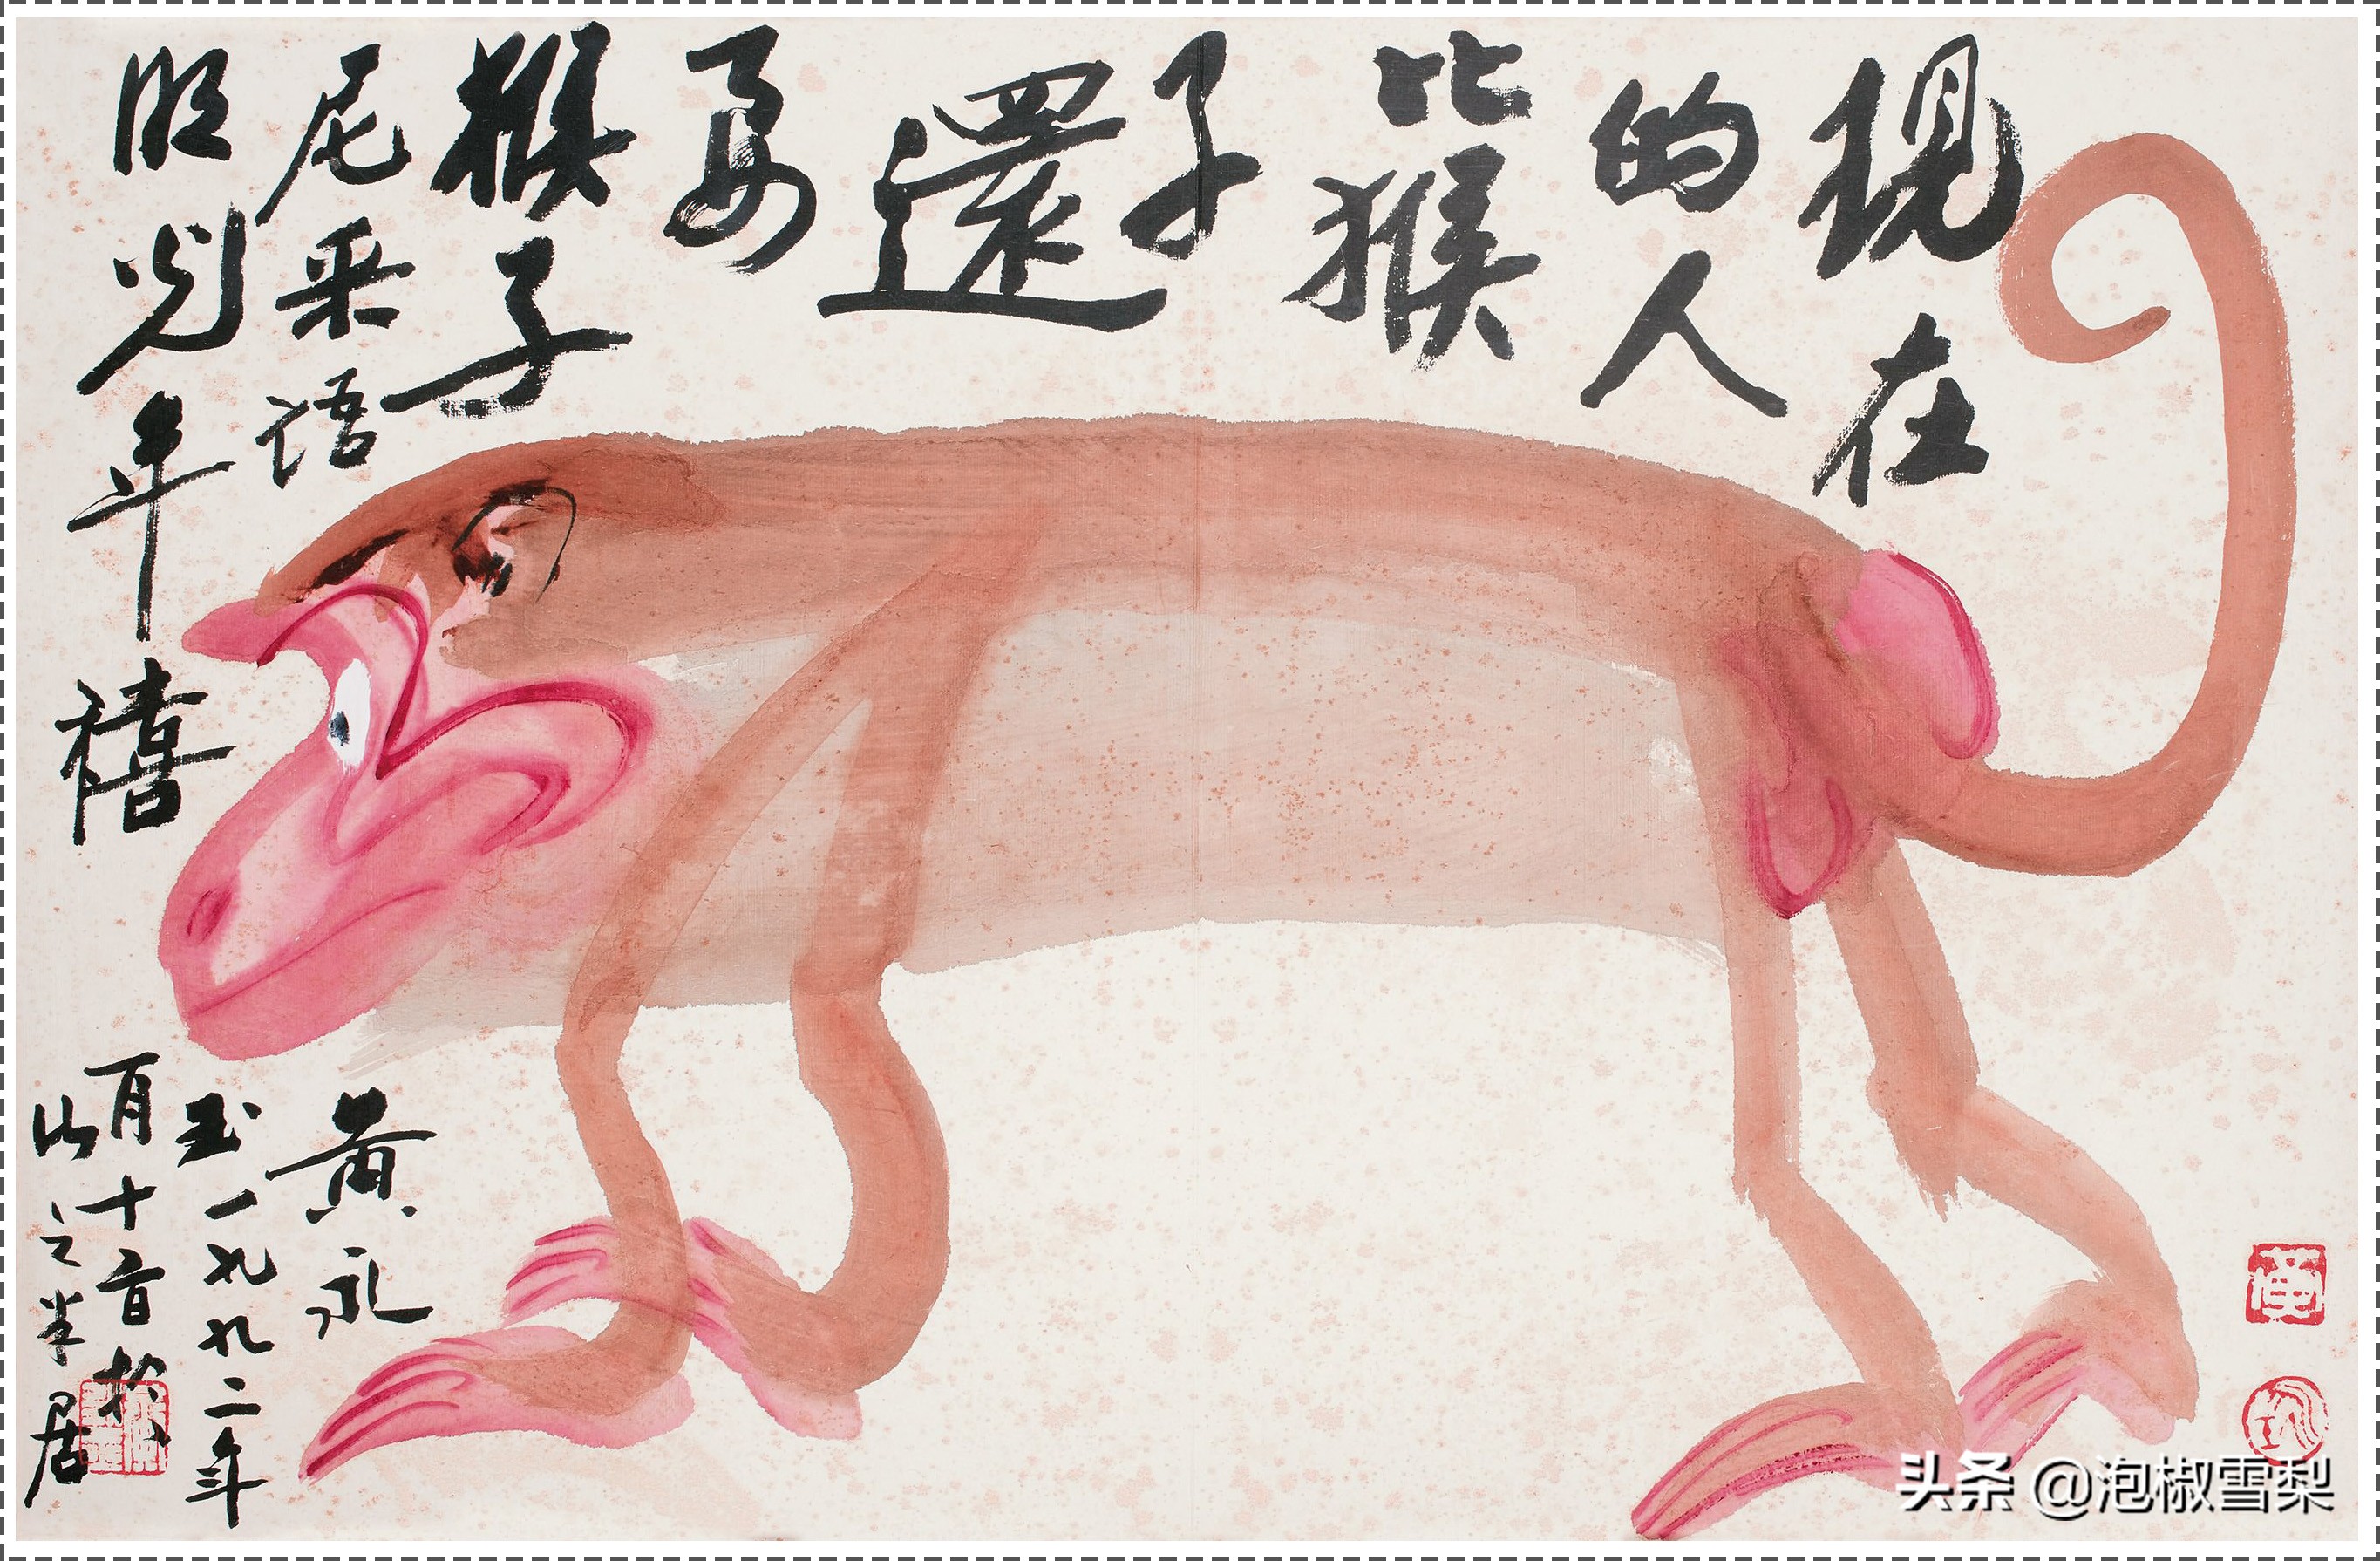 現在
的人
比猴
子
還
要
猴子
尼采語
年禧
黄永
玉一九九二年
月十日於
山之半居
头条 @泡椒雪梨